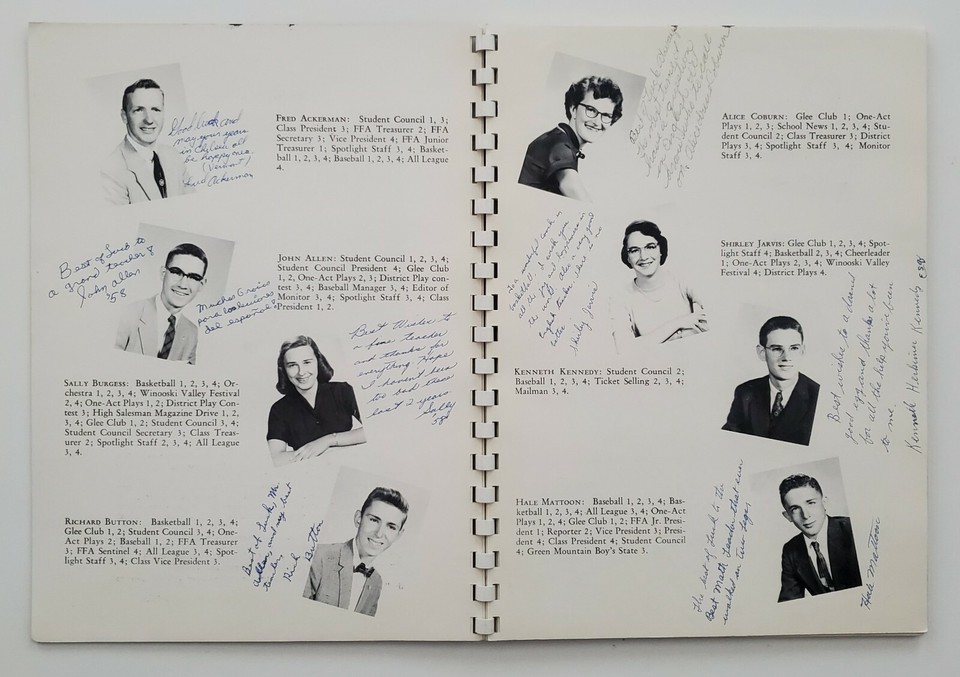 FRED ACKERMAN: Student Council 1, 3;
Class President 3; FFA Treasurer 2; FFA
Secretary 3; Vice President 4; FFA Junior
Treasurer 1; Spotlight Staff 3, 4; Basket-
ball 1, 2, 3, 4; Baseball 1, 2, 3, 4; All League
4.
Good luck and
may your years
in
be happy ones.
Fred Ackerman
JOHN ALLEN: Student Council 1, 2, 3, 4;
Student Council President 4; Glee Club
1, 2, One-Act Plays 2; District Play con-
test 3; Baseball Manager 3, 4; Editor of
Monitor 3, 4; Spotlight Staff 3, 4; Class
President 1, 2.
Best of Luck to
a grand teacher &
John Allen
'58
Muchas Gracias
para las lecciones
del español!
SALLY BURGESS: Basketball 1, 2, 3, 4; Or-
chestra 1, 2, 3, 4; Winooski Valley Festival
2, 4; One-Act Plays 1, 2; District Play Con-
test 3; High Salesman Magazine Drive 1, 2,
3, 4; Glee Club 1, 2; Student Council 3, 4;
Student Council Secretary 3; Class Treas-
urer 2; Spotlight Staff 2, 3, 4; All League
3, 4.
Best Wishes to
a home teacher
and thanks for
everything. Hope
I haven't been
too bad these
last 2 years
Sally
'58
RICHARD BUTTON: Basketball 1, 2, 3, 4;
Glee Club 1, 2; Student Council 3, 4; One-
Act Plays 2; Baseball 1, 2; FFA Treasurer
3; FFA Sentinel 4; All League 3, 4; Spot-
light Staff 3, 4; Class Vice President 3.
Best of Luck, Mr.
and my best
teacher
Rich Button
ALICE COBURN: Glee Club 1; One-Act
Plays 1, 2, 3; School News 1, 2, 3, 4; Stu-
dent Council 2; Class Treasurer 3; District
Plays 3, 4; Spotlight Staff 3, 4; Monitor
Staff 3, 4.
SHIRLEY JARVIS: Glee Club 1, 2, 3, 4; Spot-
light Staff 4; Basketball 2, 3, 4; Cheerleader
1; One-Act Plays 2, 3, 4; Winooski Valley
Festival 4; District Plays 4.
Shirley Jarvis
KENNETH KENNEDY: Student Council 2;
Baseball 1, 2, 3, 4; Ticket Selling 2, 3, 4;
Mailman 3, 4.
Best wishes to a darned
good egg and thanks a lot
for all the help you've been
to me.
Kenneth Herkimer Kennedy
HALE MATTOON: Baseball 1, 2, 3, 4; Bas-
ketball 1, 2, 4; All League 3, 4; One-Act
Plays 1, 2, 4; Glee Club 1, 2; FFA Jr. Presi-
dent 1; Reporter 2; Vice President 3; Presi-
dent 4; Class President 4; Student Council
4; Green Mountain Boy's State 3.
The best of luck to the
Best Math teacher that ever
walked on two legs
Hale Mattoon